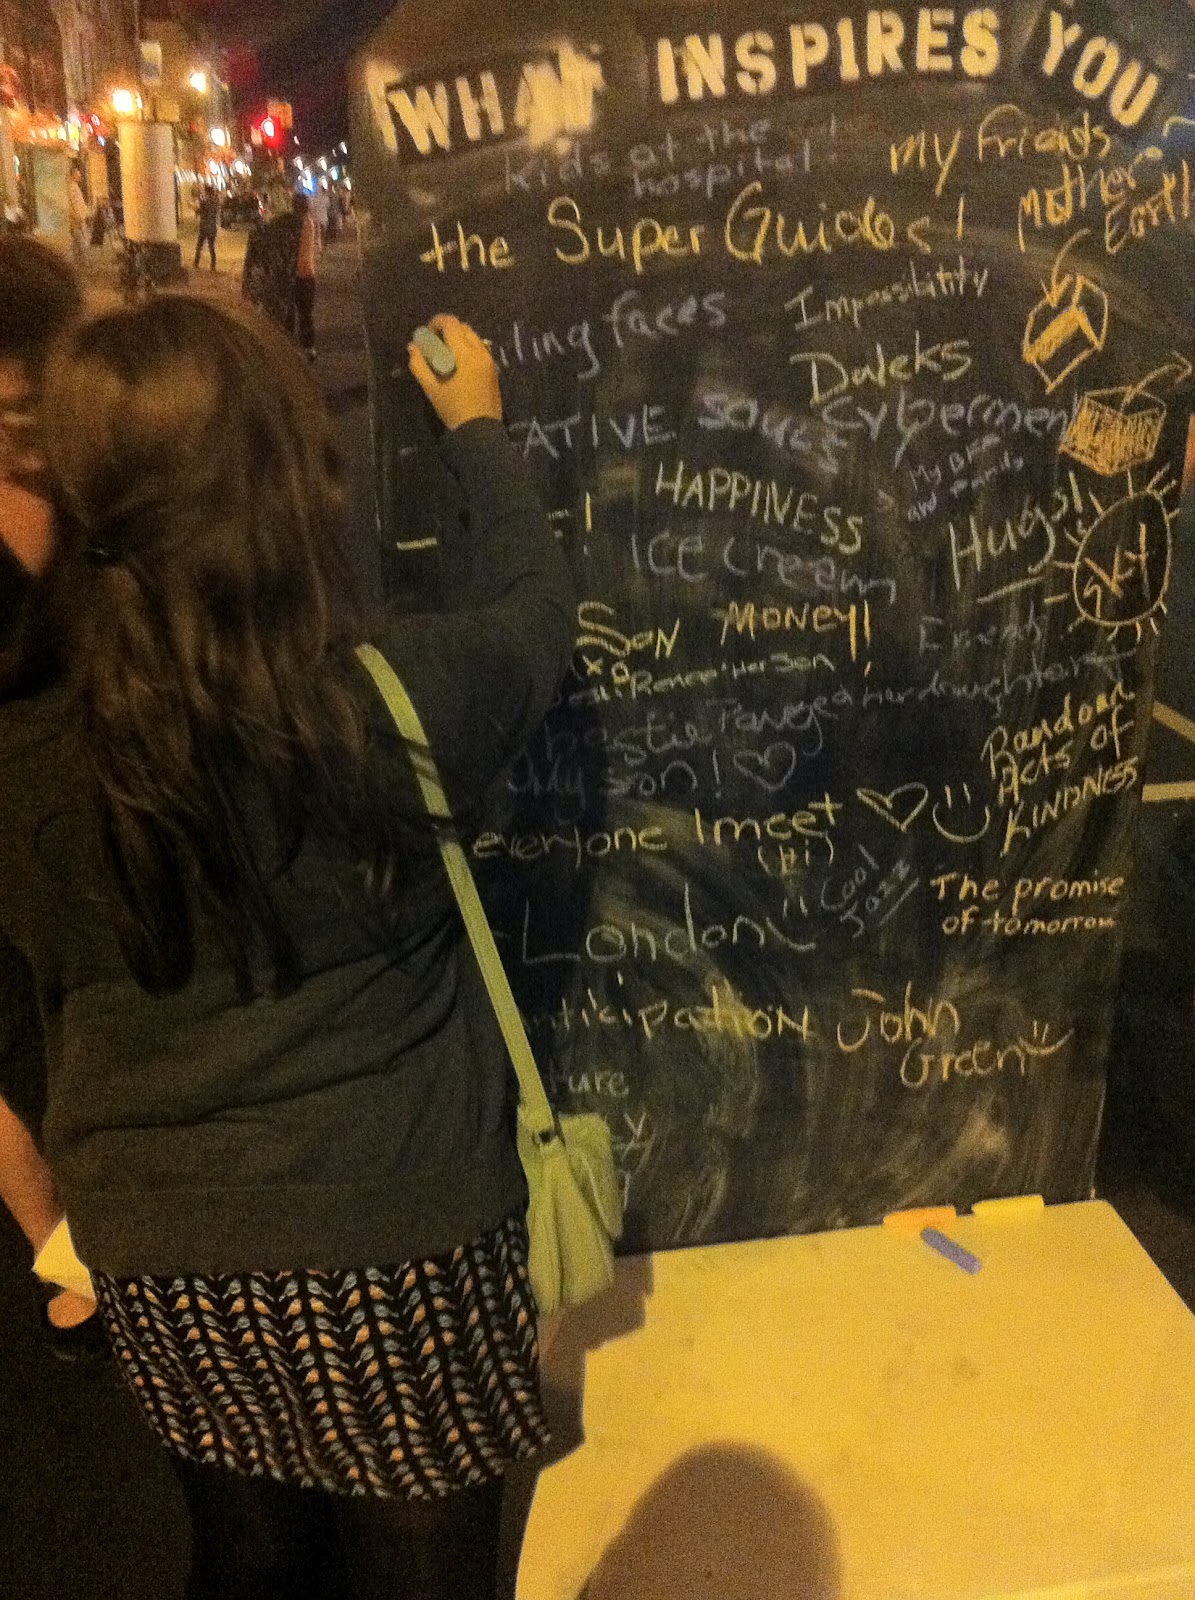 WHAT INSPIRES YOU
Kids at the
hospital!
my Friends
Mother
Earth!
the Super Guides!
iling faces
Impossibility
Daleks
Cybermen
ATIVE SOULS
My BFF
and family
HAPPINESS
Hugs!
Ice Cream
SKY
Son MONEY!!
XO
Renee + Her Son!
bestie Tanya & Her daughter
only son!
Random
Acts of
KINDNESS
everyone I meet
(Hi)
Cool
Jazz
The promise
of tomorrow
London
nticipation
John
Green
ture
y